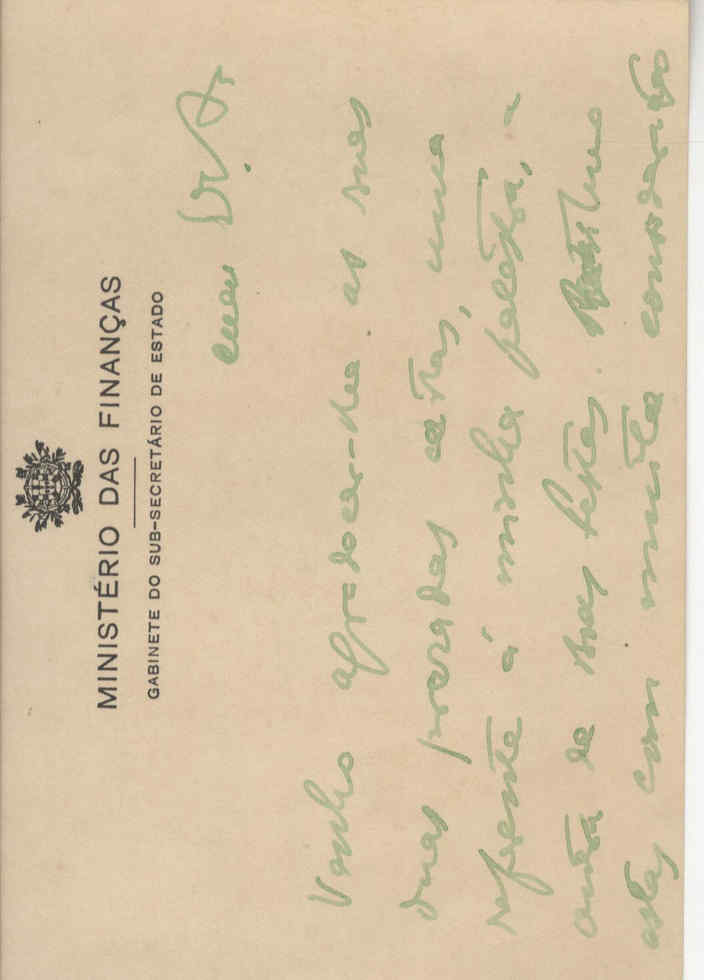 MINISTÉRIO DAS FINANÇAS
GABINETE DO SUB-SECRETÁRIO DE ESTADO
Meu
Venho agradecer-lhe as suas
duas prezadas cartas, uma
referente à minha palestra, a
outra de Boas festas. Retribuo
estas com muita consideração